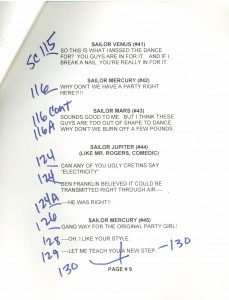 SAILOR VENUS (#41)
SC 115
SO THIS IS WHAT I MISSED THE DANCE
FOR? YOU GUYS ARE IN FOR IT. AND IF I
BREAK A NAIL, YOU'RE REALLY IN FOR IT.
SAILOR MERCURY (#42)
116
WHY DON'T WE HAVE A PARTY RIGHT
HERE?!!!
SAILOR MARS (#43)
116 CONT
SOUNDS GOOD TO ME. BUT I THINK THESE
116A
GUYS ARE TOO OUT OF SHAPE TO DANCE.
WHY DON'T WE BURN OFF A FEW POUNDS
SAILOR JUPITER (#44)
(LIKE MR. ROGERS, COMEDIC)
124
CAN ANY OF YOU UGLY CRETINS SAY
"ELECTRICITY"
124
BEN FRANKLIN BELIEVED IT COULD BE
TRANSMITTED RIGHT THROUGH AIR----
124A
----HE WAS RIGHT!!
SAILOR MERCURY (#45)
126
GANG WAY FOR THE ORIGINAL PARTY GIRL!
128
----OH, I LIKE YOUR STYLE.
129
----LET ME TEACH YOU A NEW STEP -130
130
PAGE # 9